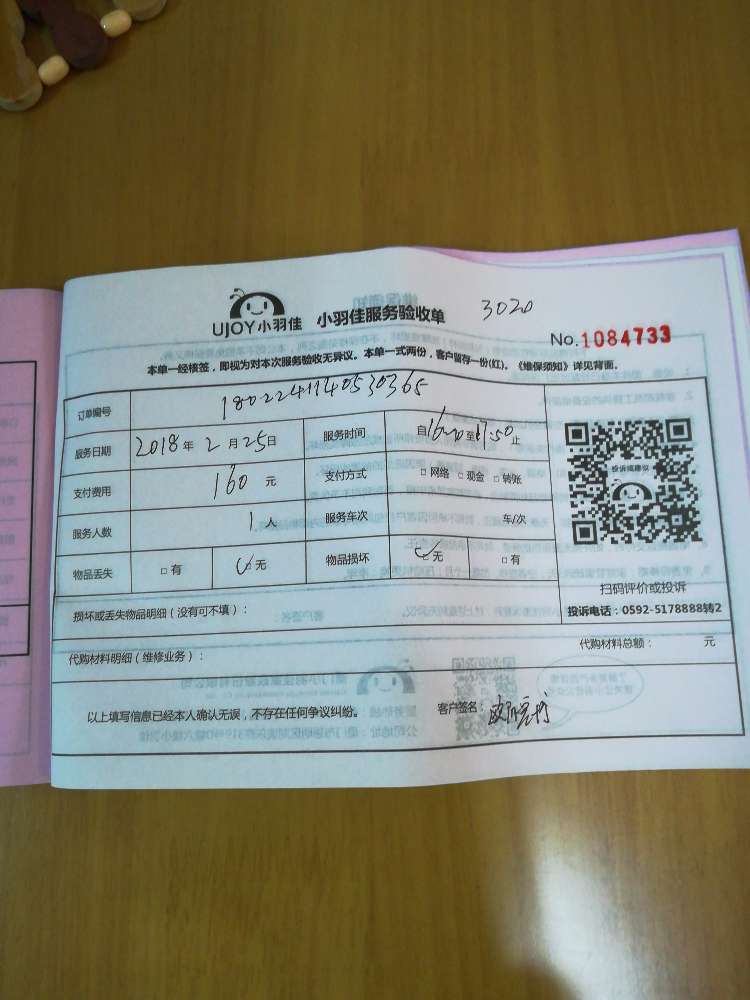 UJOY小羽佳 小羽佳服务验收单 3020
No.1084733
本单一经核签，即视为对本次服务验收无异议。本单一式两份，客户留存一份(红)。《维保须知》详见背面。
订单编号 1802241140530365
服务日期 2018年2月25日 服务时间 自 至 :50止
支付费用 160元 支付方式 □网络 □现金 □转账
服务人数 1人 服务车次 车/次
物品丢失 □有 无 物品损坏 无 □有
投诉或建议
扫码评价或投诉
投诉电话：0592-5178888转2
损坏或丢失物品明细（没有可不填）：
代购材料明细（维修业务）： 代购材料总额： 元
以上填写信息已经本人确认无误，不存在任何争议纠纷。 客户签名：